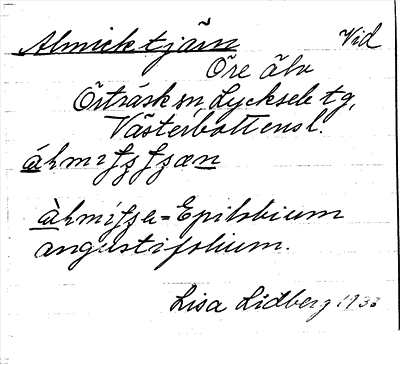 Almicktjärn Vid
Öre älv
Örträsk sn, Lycksele tg,
Västerbottensl.
áhmiʃʒʃʒæn
àhmiʃʒa = Epilobium
angustifolium.
Lisa Lidberg 1933